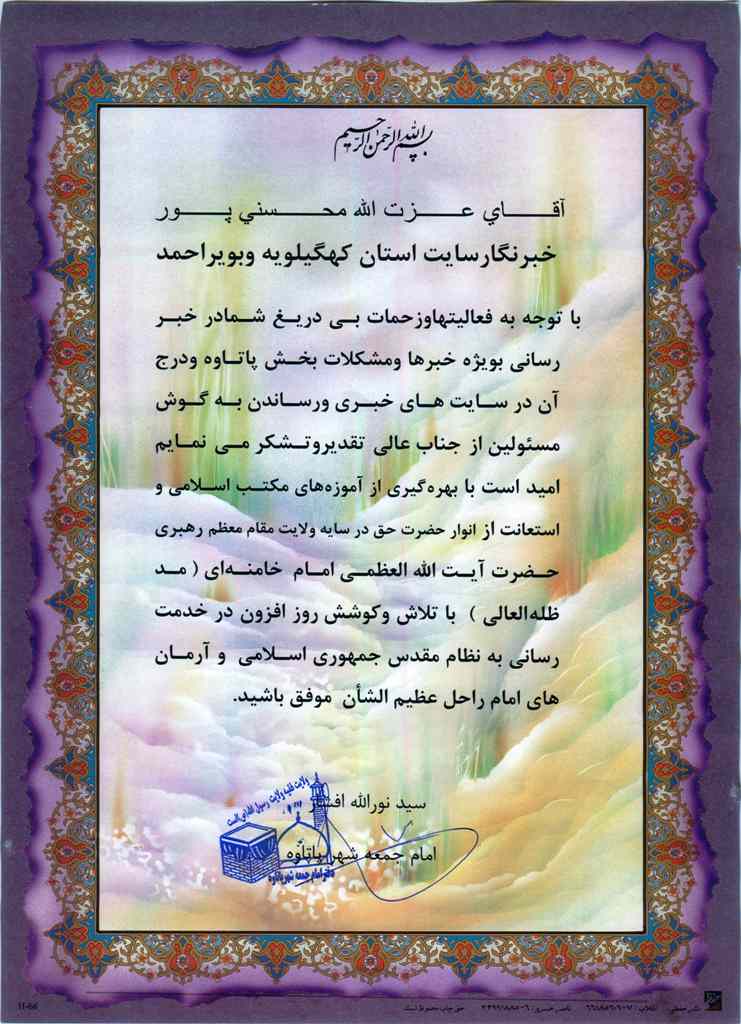 بسم الله الرحمن الرحیم
آقـــاي عــــزت الله محـــسني پـــور
خبرنگارسایت استان کهگیلویه وبویراحمد
با توجه به فعالیتهاوزحمات بی دریغ شمادر خبر
رسانی بویژه خبرها ومشکلات بخش پاتاوه ودرج
آن در سایت های خبری ورساندن به گوش
مسئولین از جناب عالی تقدیروتشکر می نمایم
امید است با بهره‌گیری از آموزه‌های مکتب اسلامی و
استعانت از انوار حضرت حق در سایه ولایت مقام معظم رهبری
حضرت آیت الله العظمی امام خامنه‌ای ( مد
ظله‌العالی ) با تلاش وکوشش روز افزون در خدمت
رسانی به نظام مقدس جمهوری اسلامی و آرمان
های امام راحل عظیم الشأن موفق باشید.
سید نورالله افشار
امام جمعه شهر پاتاوه
ولایت فقیه ولایت رسول الله است
دفتر امام جمعه شهر پاتاوه
حق چاپ محفوظ است
11-66